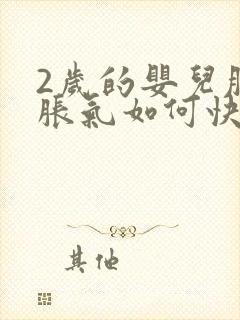 2歲的嬰兒
脹氣如何快
其他